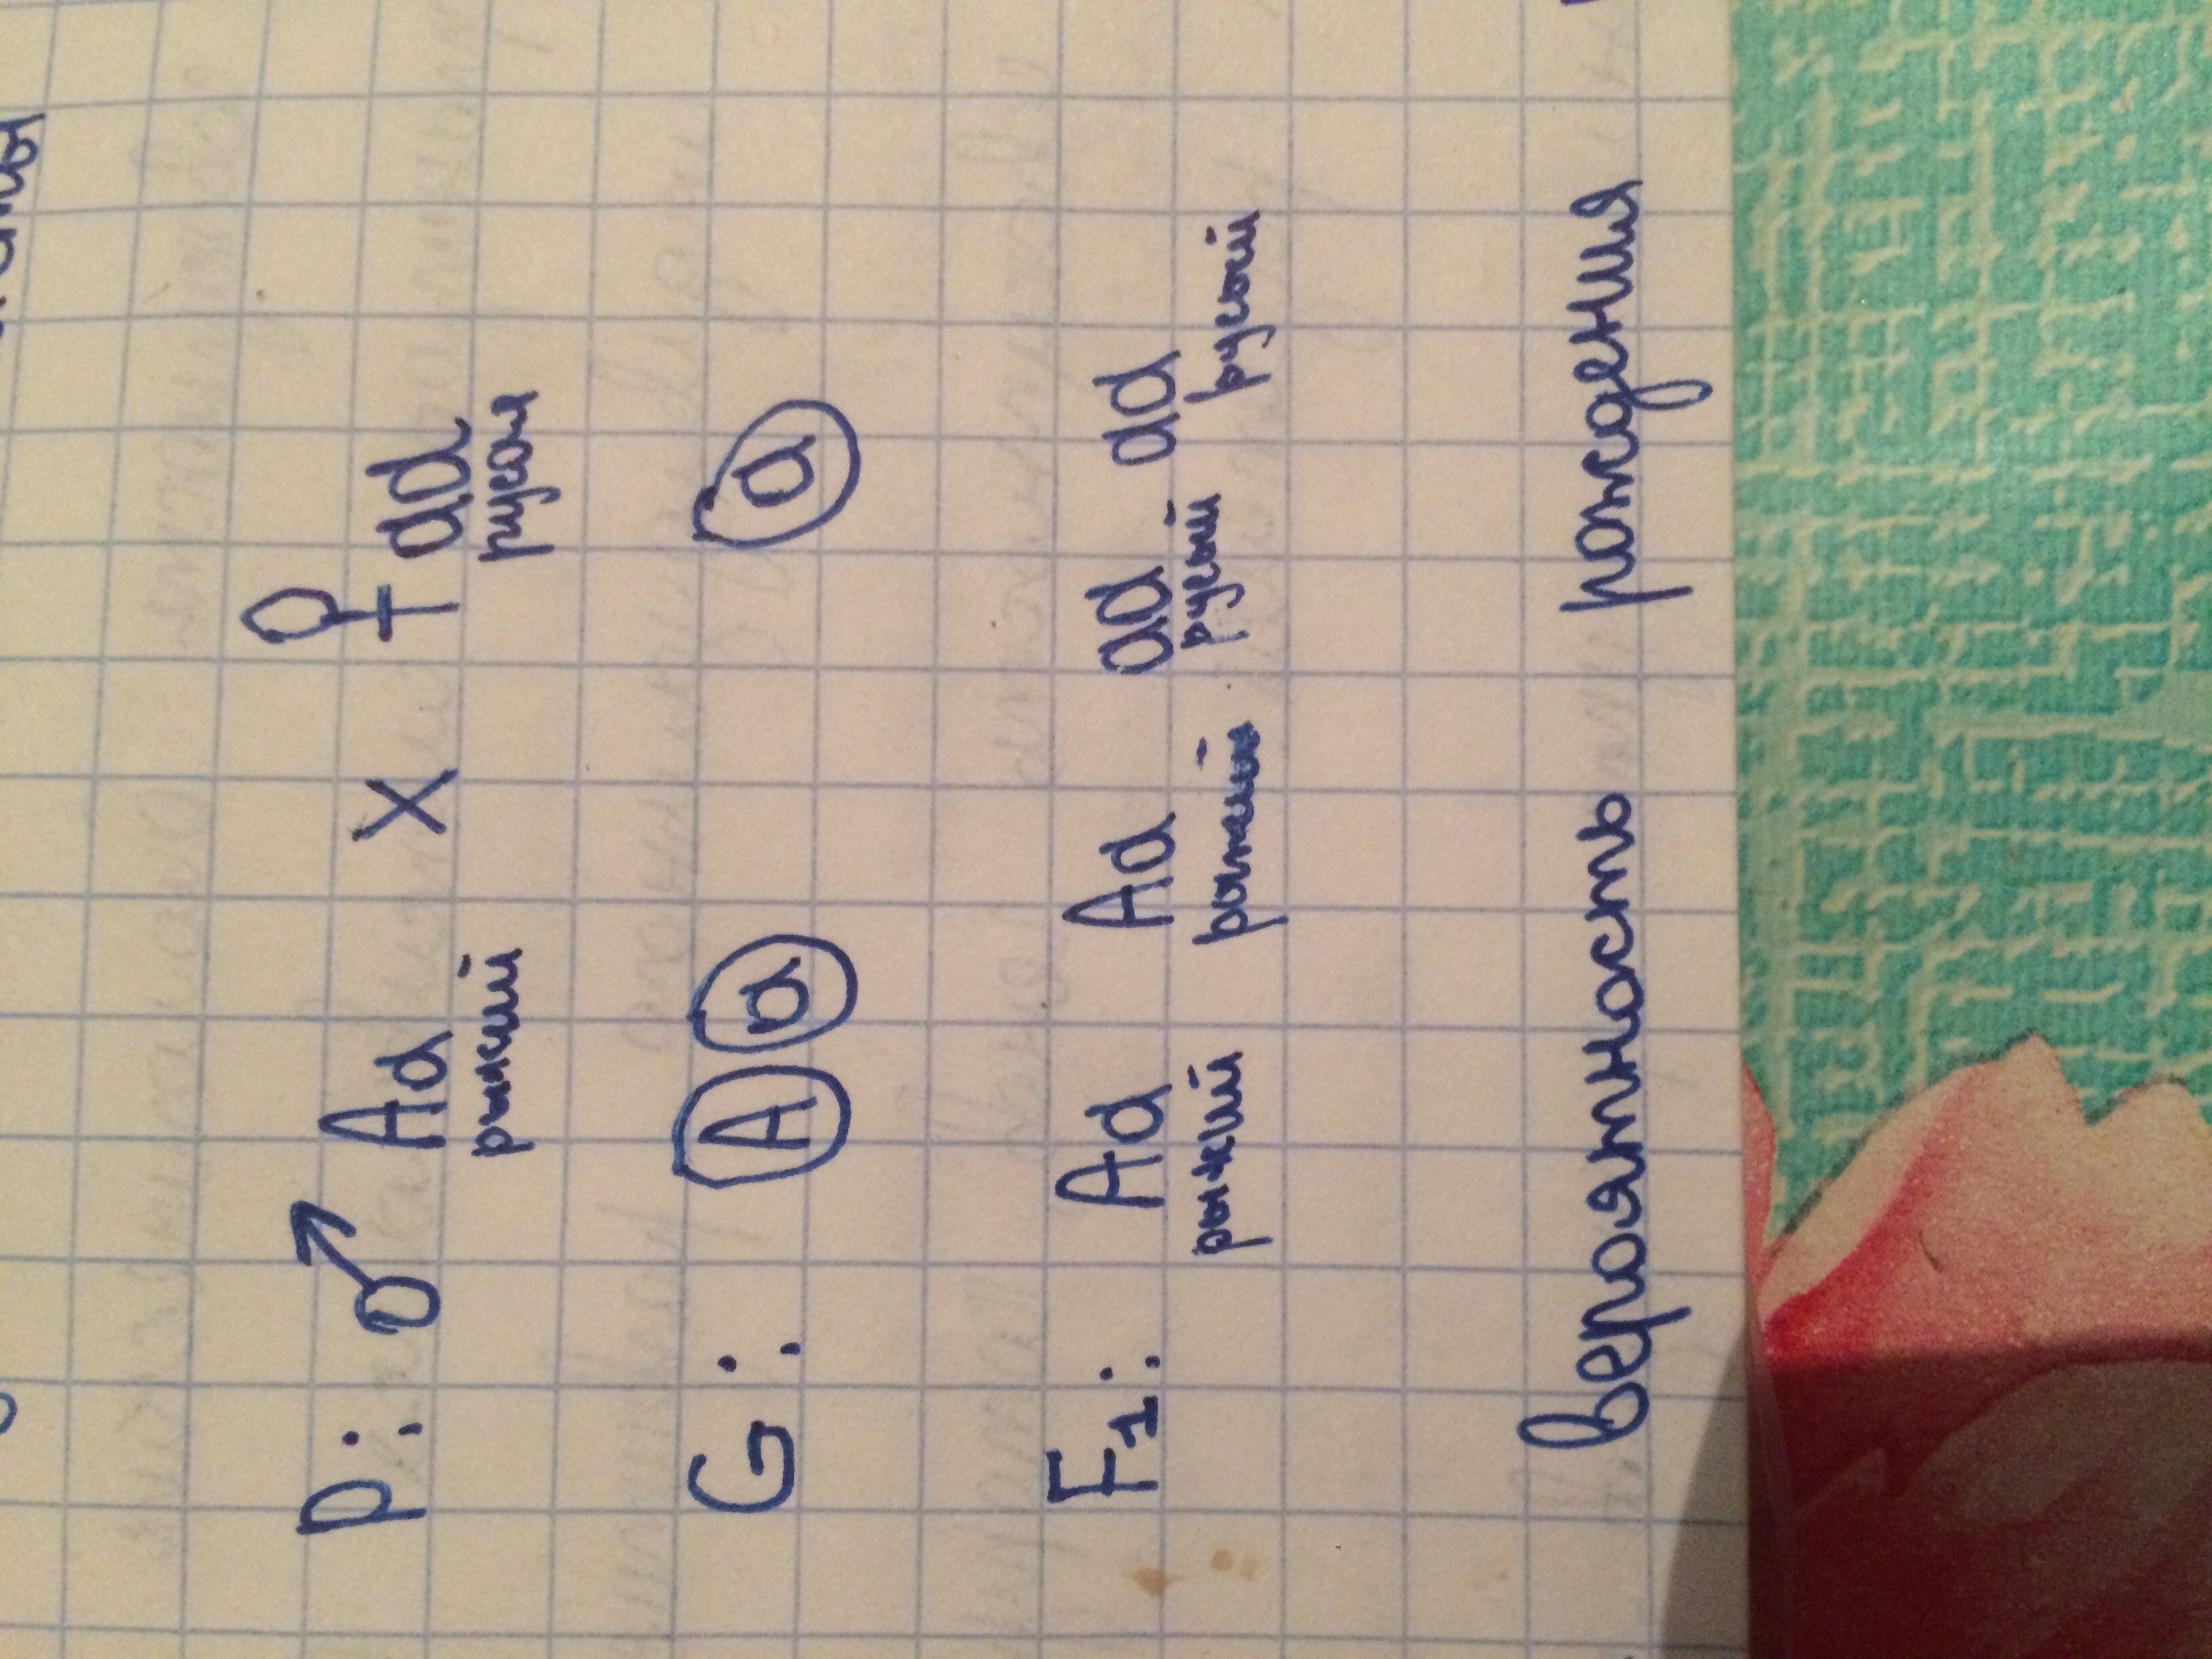 P: ♂ Aa x ♀ aa
рыжий русая
G: A a a
F1: Aa Aa aa aa
рыжий рыжий русый русый
Вероятность рождения